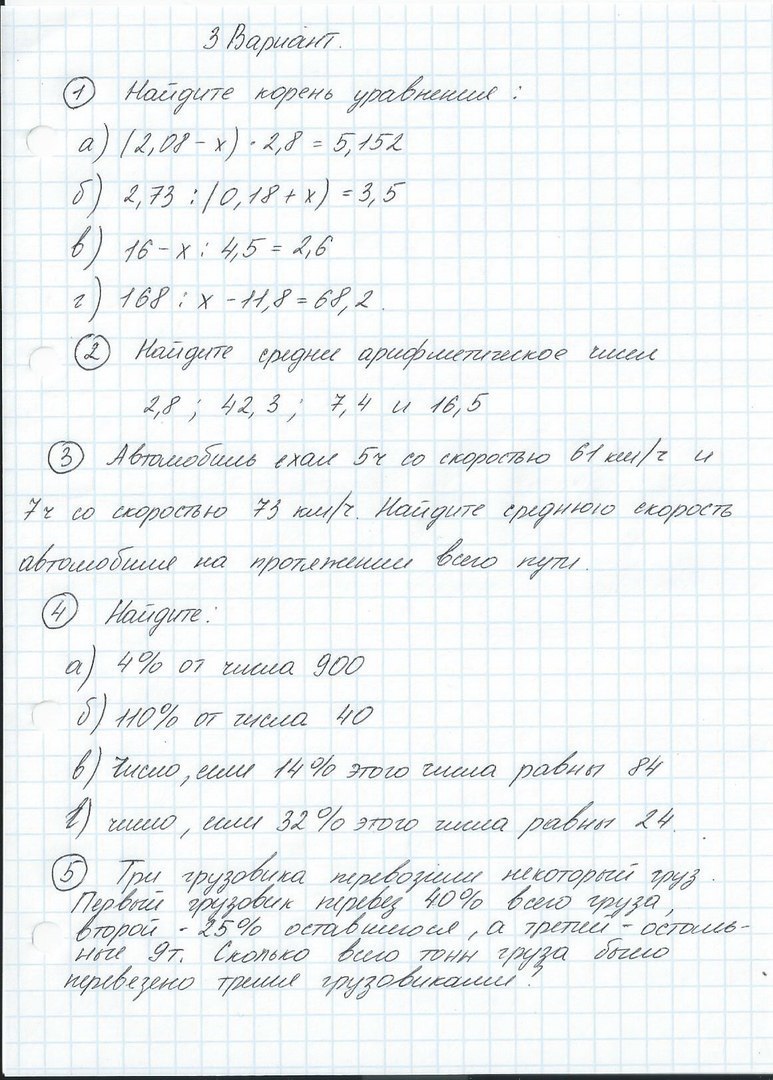 3 Вариант.
1 Найдите корень уравнения:
а) (2,08 - х) · 2,8 = 5,152
б) 2,73 : (0,18 + х) = 3,5
в) 16 - х : 4,5 = 2,6
г) 168 : х - 11,8 = 68,2.
2 Найдите средне арифметическое чисел
2,8; 42,3; 7,4 и 16,5
3 Автомобиль ехал 5ч со скоростью 61 км/ч и
7ч со скоростью 73 км/ч. Найдите среднюю скорость
автомобиля на протяжении всего пути.
4 Найдите:
а) 4% от числа 900
б) 110% от числа 40
в) Число, если 14% этого числа равны 84
г) число, если 32% этого числа равны 24.
5 Три грузовика перевозили некоторый груз.
Первый грузовик перевез 40% всего груза,
второй - 25% оставшегося, а третий - осталь-
ные 9т. Сколько всего тонн груза было
перевезено тремя грузовиками?